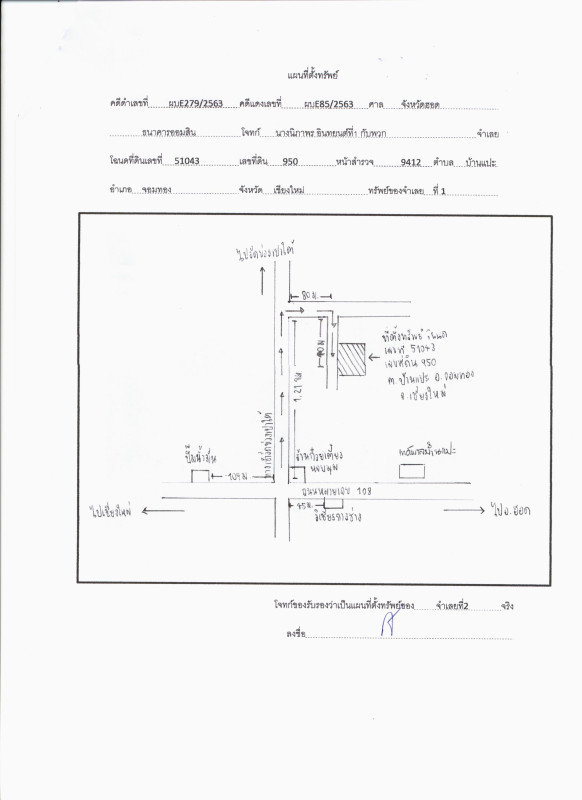 แผนที่ตั้งทรัพย์
คดีดำเลขที่ ผบE279/2563 คดีแดงเลขที่ ผบE85/2563 ศาล จังหวัดฮอด
ธนาคารออมสิน โจทก์ นางนิภาพร อินทยนต์ที่1 กับพวก จำเลย
โฉนดที่ดินเลขที่ 51043 เลขที่ดิน 950 หน้าสำรวจ 9412 ตำบล บ้านแปะ
อำเภอ จอมทอง จังหวัด เชียงใหม่ ทรัพย์ของจำเลย ที่ 1
ไปวัดข่วงเปาใต้
80 ม.
ที่ตั้งทรัพย์ โฉนด
เลขที่ 51043
เลขที่ดิน 950
ต.บ้านแปะ อ.จอมทอง
จ.เชียงใหม่
1.21 กม
ทางเข้าข่วงเปาใต้
ปั๊มน้ำมัน
109 ม
ร้านก๋วยเตี๋ยว
ถนนหมายเลข 108
45 ม.
ไปเชียงใหม่
ไป อ.ฮอด
โจทก์ขอรับรองว่าเป็นแผนที่ตั้งทรัพย์ของ จำเลยที่2 จริง
ลงชื่อ